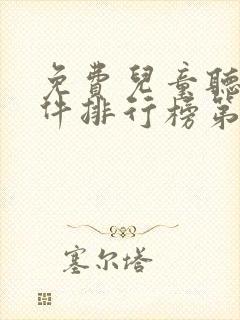 免費兒童聽
件排行榜第
塞尔塔